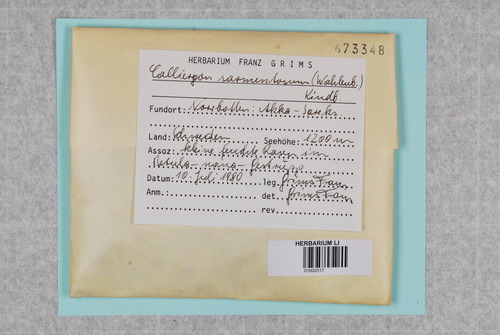 573348
HERBARIUM FRANZ GRIMS
Calliergon sarmentosum (Wahlenb.)
Kindb.
Fundort: Norrbotten: Akka - Sarek
Land: Schweden Seehöhe: 1200 m
Assoz: kleine feuchte Rasen im
Betula-nana-Gestrüpp
Datum: 10. Juli 1980 leg. Grims Franz
Anm.: det. Grims Franz
rev.
HERBARIUM LI
01602517